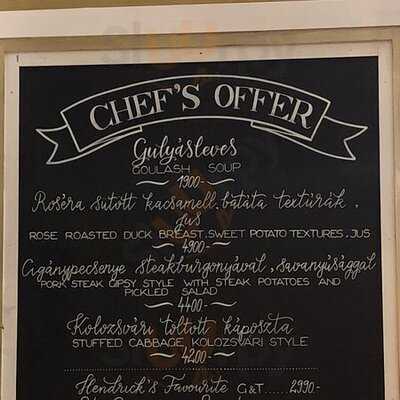 CHEF'S OFFER
Gulyásleves
GOULASH SOUP
1900-
Roséra sütött kacsamell, batáta textúrák,
jus
ROSE ROASTED DUCK BREAST, SWEET POTATO TEXTURES, JUS
4900-
Cigánypecsenye steakburgonyával, savanyúsággal
PORK STEAK GIPSY STYLE WITH STEAK POTATOES AND
PICKLED SALAD
4400-
Kolozsvári töltött káposzta
STUFFED CABBAGE, KOLOZSVÁRI STYLE
4200-
Hendrick's Favourite G&T.....2990-